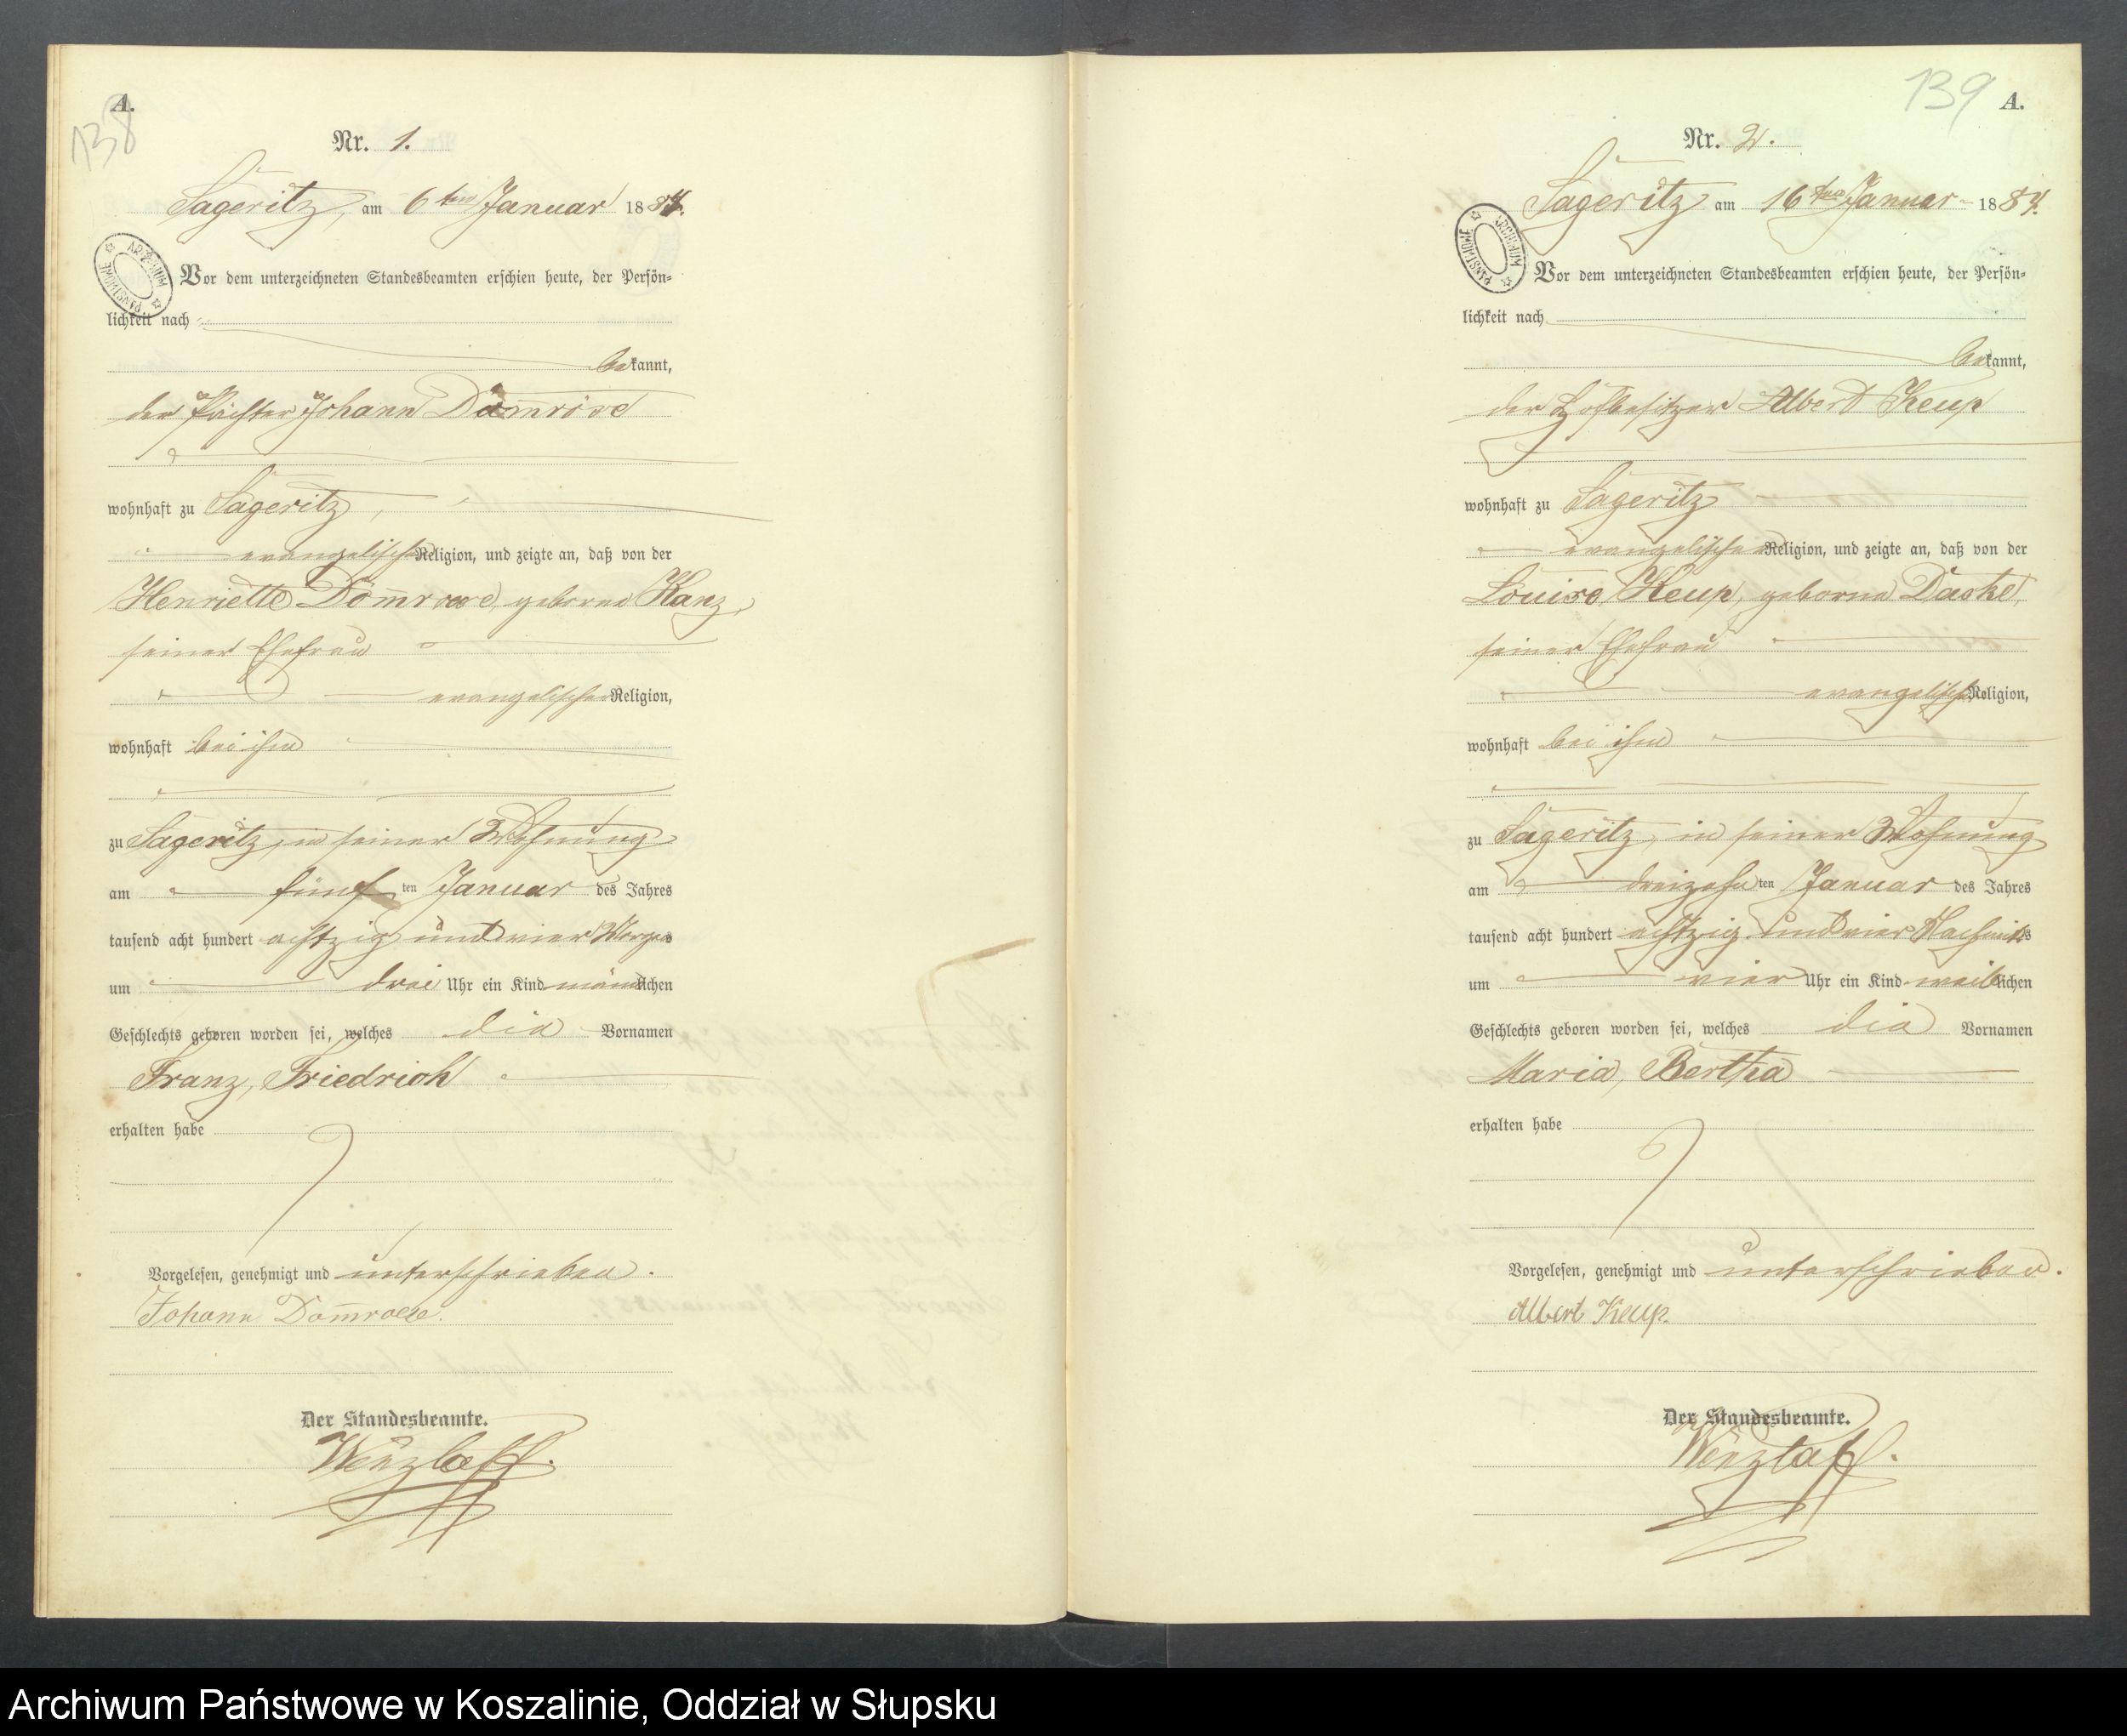 A.
138
Nr. 1.
Sageritz, am 6ten Januar 1884.
ARCHIWUM PAŃSTWOWE
Vor dem unterzeichneten Standesbeamten erschien heute, der Persön-
lichkeit nach
bekannt,
der Pächter Johann Domröse
wohnhaft zu Sageritz,
evangelischer Religion, und zeigte an, daß von der
Henriette Domröse, geborne Kanz,
seiner Ehefrau
evangelischer Religion,
wohnhaft bei ihm
zu Sageritz, in seiner Wohnung
am fünften Januar des Jahres
tausend acht hundert achtzig und vier Morgens
um drei Uhr ein Kind männlichen
Geschlechts geboren worden sei, welches die Vornamen
Franz, Friedrich
erhalten habe
Vorgelesen, genehmigt und unterschrieben.
Johann
Der Standesbeamte.
Wenzlaff.
139 A.
Nr. 2.
Sageritz am 16ten Januar 1884.
ARCHIWUM PAŃSTWOWE
Vor dem unterzeichneten Standesbeamten erschien heute, der Persön-
lichkeit nach
bekannt,
der Hofbesitzer Albert Keup
wohnhaft zu Sageritz
evangelischer Religion, und zeigte an, daß von der
Louise Keup, geborne Daske,
seiner Ehefrau
evangelischer Religion,
wohnhaft bei ihm
zu Sageritz, in seiner Wohnung
am dreizehnten Januar des Jahres
tausend acht hundert achtzig und vier Nachmitts
um vier Uhr ein Kind weiblichen
Geschlechts geboren worden sei, welches die Vornamen
Maria, Bertha
erhalten habe
Vorgelesen, genehmigt und unterschrieben.
Albert Keup.
Der Standesbeamte.
Wenzlaff.
Archiwum Państwowe w Koszalinie, Oddział w Słupsku